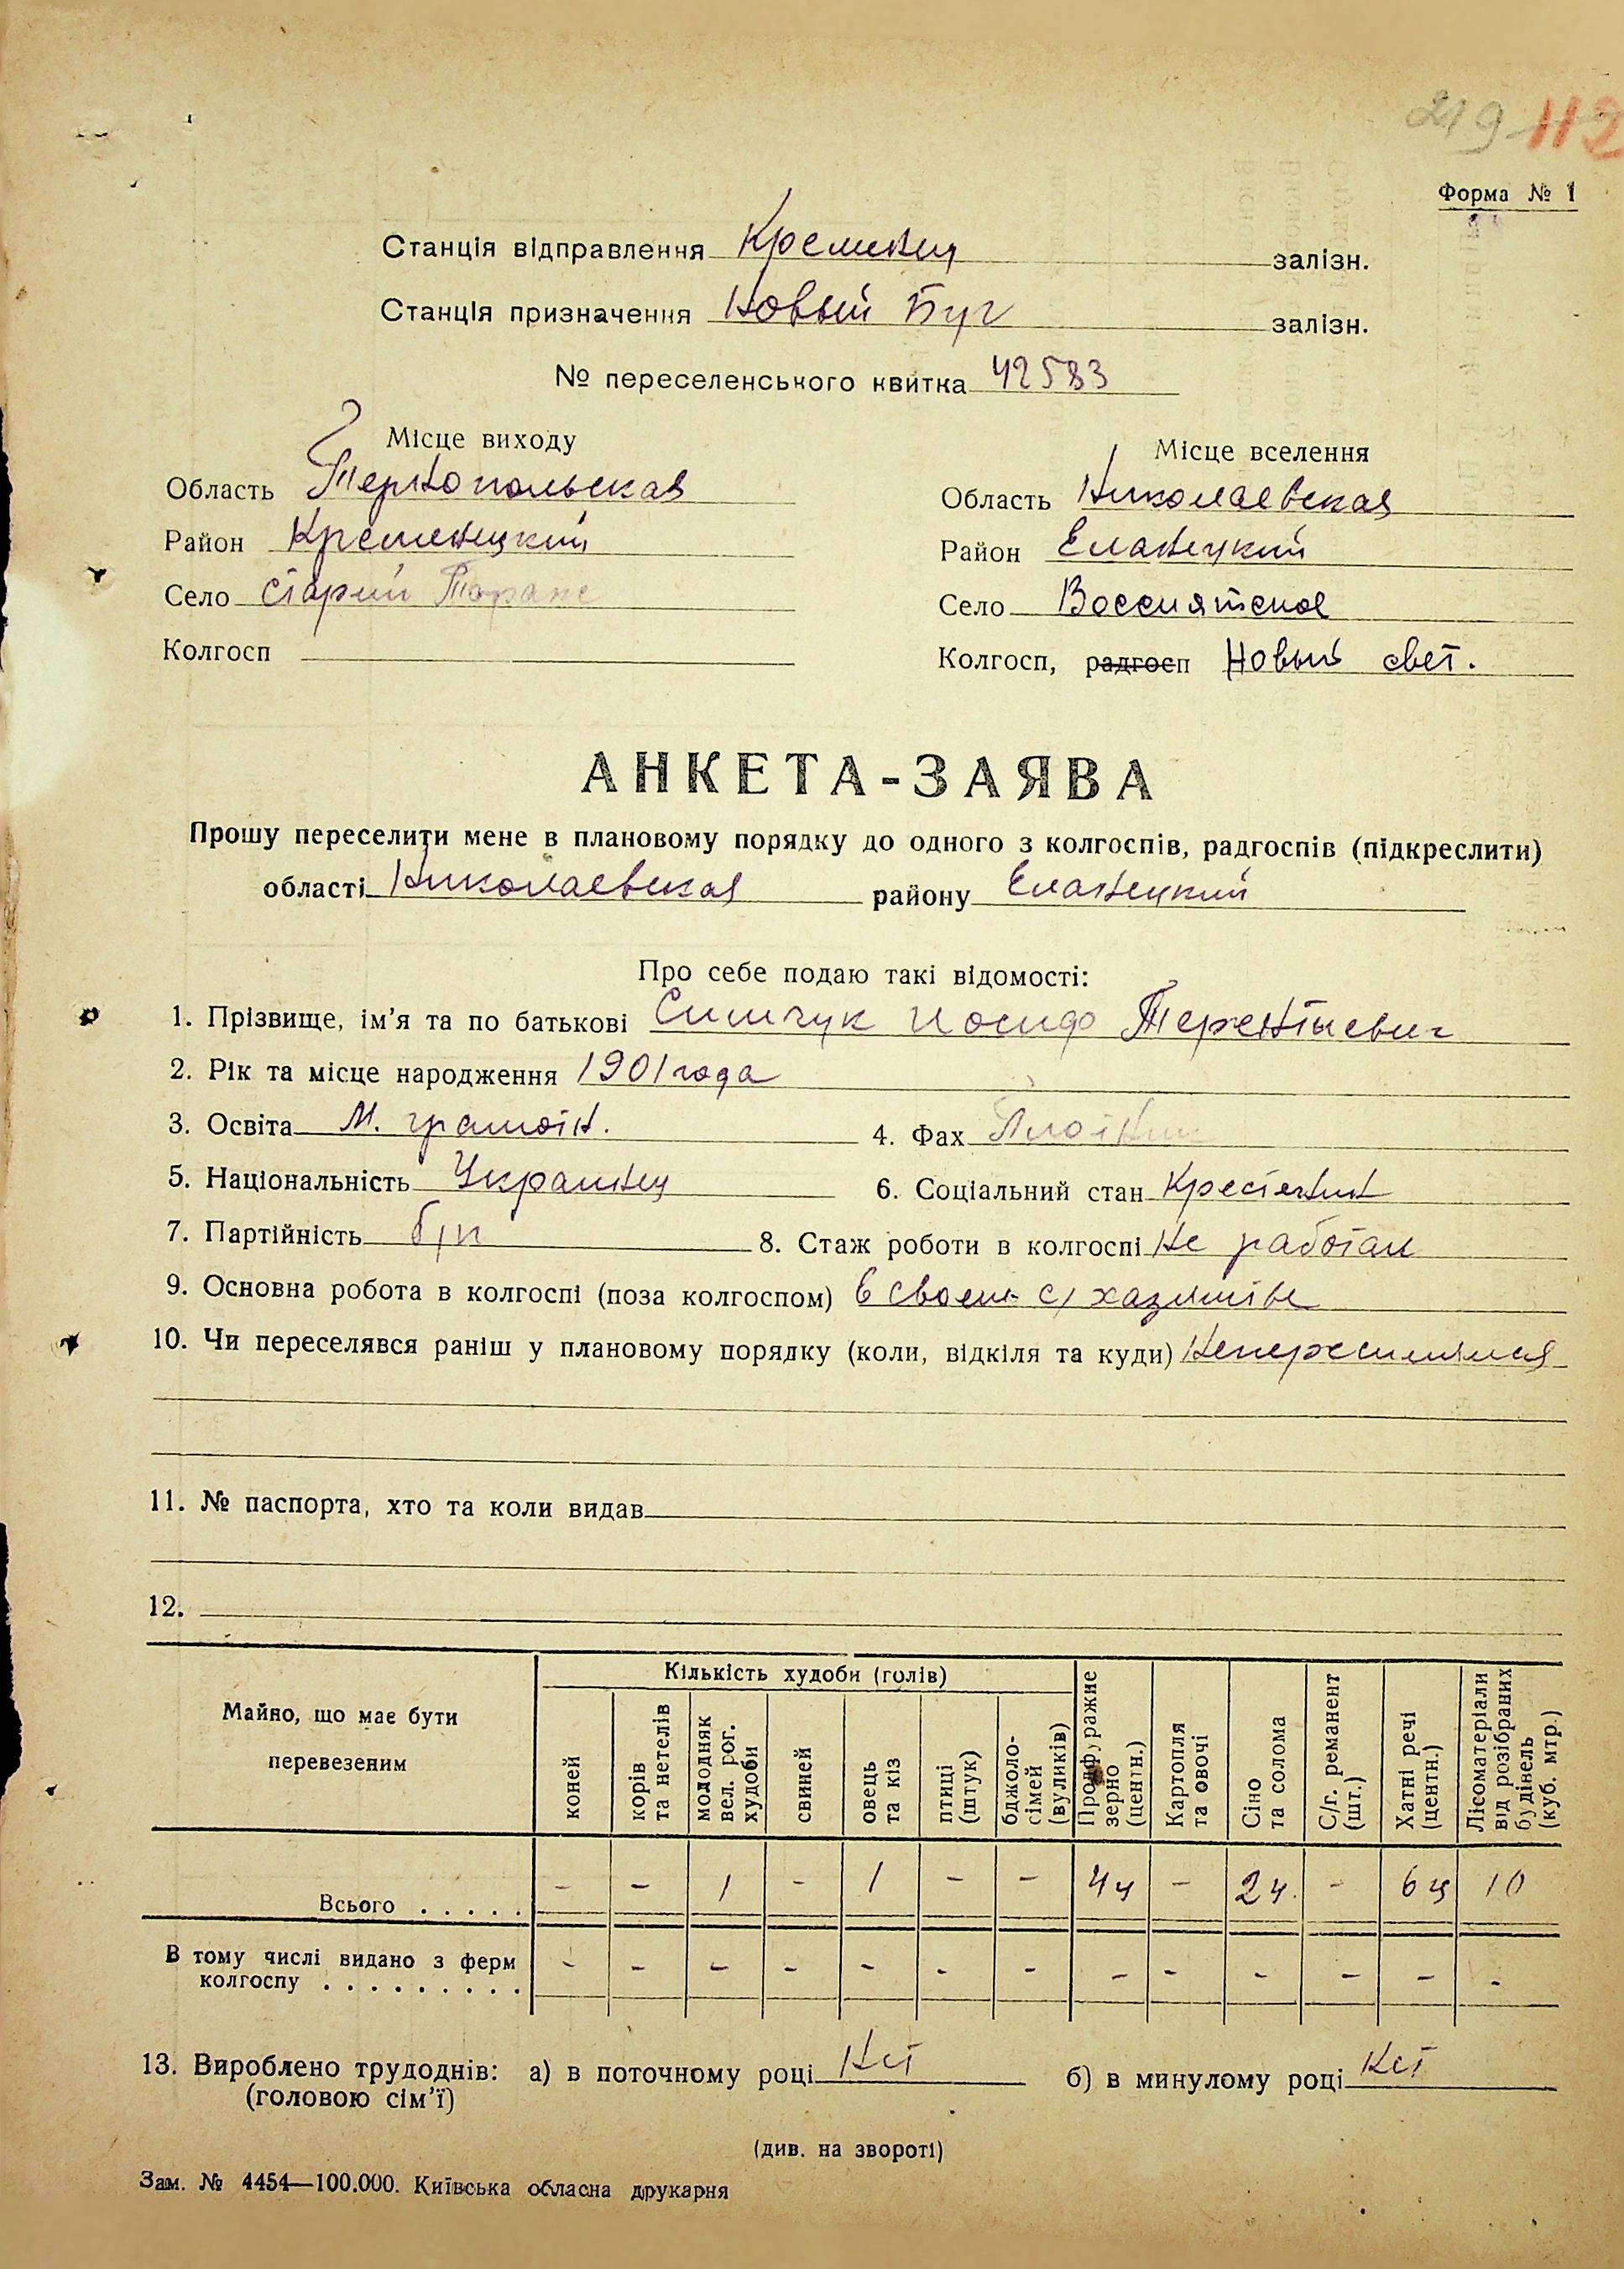 219 112
Форма № 1
Станція відправлення Кременец залізн.
Станція призначення Новый Буг залізн.
№ переселенського квитка 42583
Місце виходу
Область Тернопольская
Район Кременецкий
Село Старий Тараж
Колгосп
Місце вселення
Область Николаевская
Район Еланецкий
Село Воссиятское
Колгосп, радгосп Новый свет.
АНКЕТА-ЗАЯВА
Прошу переселити мене в плановому порядку до одного з колгоспів, радгоспів (підкреслити)
області Николаевская району Еланецкий
Про себе подаю такі відомості:
1. Прізвище, ім'я та по батькові Симчук Иосифо Терентьевич
2. Рік та місце народження 1901 года
3. Освіта М. грамотн. 4. Фах Плотник
5. Національність Украинец 6. Соціальний стан Крестянин
7. Партійність б/п 8. Стаж роботи в колгоспі Не работал
9. Основна робота в колгоспі (поза колгоспом) в своем с/хазяистве
10. Чи переселявся раніш у плановому порядку (коли, відкіля та куди) Непереселялся
11. № паспорта, хто та коли видав
12.
Майно, що має бути перевезеним
Кількість худоби (голів)
коней
корів та нетелів
молодняк вел. рог. худоби
свиней
овець та кіз
птиці (штук)
бджоло-сімей (вуликів)
Продфуражне зерно (центн.)
Картопля та овочі
Сіно та солома
С/г. реманент (шт.)
Хатні речі (центн.)
Лісоматеріали від розібраних будівель (куб. мтр.)
Всього . . . . . - - 1 - 1 - - 4ц - 2ц. - 6ц 10
В тому числі видано з ферм
колгоспу . . . . . . . . . - - - - - - - - - - - - -
13. Вироблено трудоднів: а) в поточному році Нет б) в минулому році Нет
(головою сім'ї)
(див. на звороті)
Зам. № 4454—100.000. Київська обласна друкарня